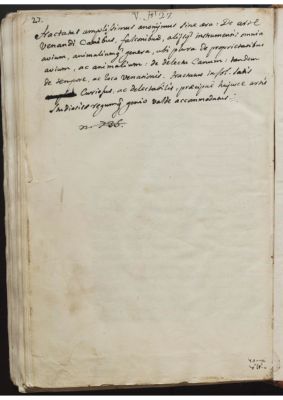 27. V. fol 27
Tractatus amplissimus anonymus sine aera: De arte
Venandi Canibus, falconibus, alijsq instrumentis omnia
avium, animaliumq genera, ubi plura de proprietatibus
avium, ac animalium: de delectu Canum: tandem
de tempore, ac loco Venationis. Tractatus in fol. satis
Curiosus, ac delectabilis, præcipuè hujusce artis
studiosis regumq genio valde accommodatus